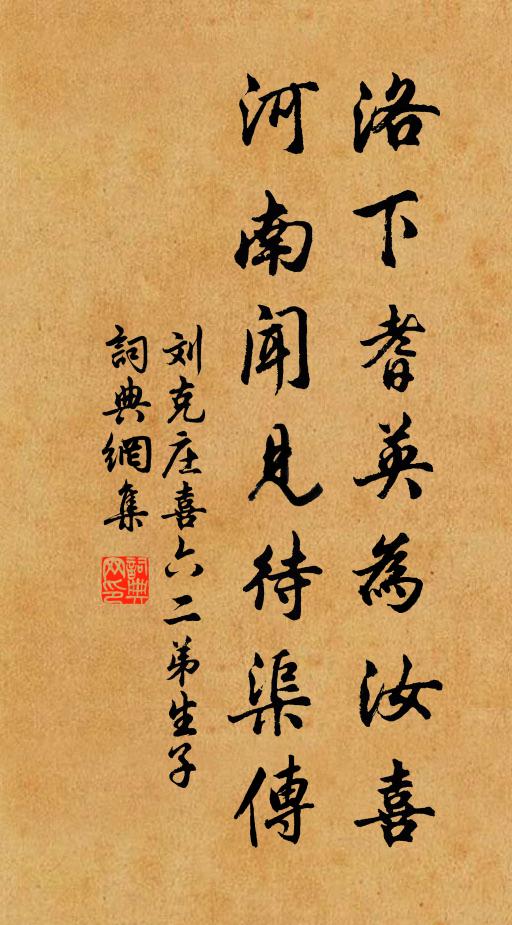 洛下耆英為汝喜
河南聞見待渠傳
刘克庄喜六二弟生子
詞典網集
詞典
网印